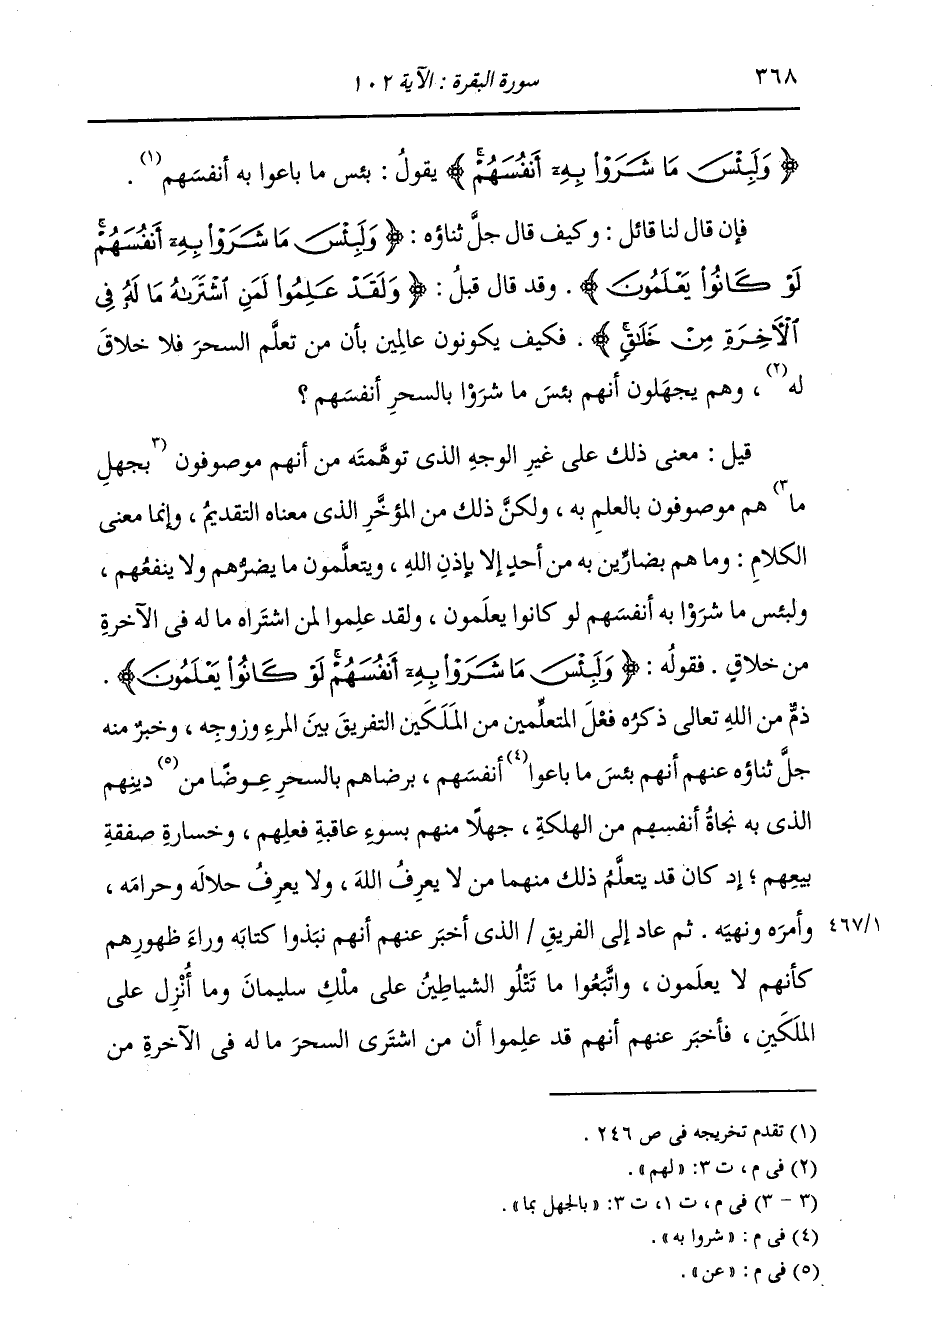 ٣٦٨
سورة البقرة : الآية ١٠٢
﴿ وَلَبِئْسَ مَا شَرَوْا بِهِۦٓ أَنفُسَهُمْۚ ﴾ يقولُ : بئس ما باعوا به أنفسَهم(١) .
فإن قال لنا قائل : وكيف قال جلَّ ثناؤه : ﴿ وَلَبِئْسَ مَا شَرَوْا بِهِۦٓ أَنفُسَهُمْۚ
لَوْ كَانُوا يَعْلَمُونَ ﴾ . وقد قال قبلُ : ﴿ وَلَقَدْ عَلِمُوا لَمَنِ ٱشْتَرَىٰهُ مَا لَهُۥ فِى
ٱلْآخِرَةِ مِنْ خَلَٰقٍۚ ﴾ . فكيف يكونون عالِمين بأن من تعلَّم السحرَ فلا خلاقَ
له(٢) ، وهم يجهَلون أنهم بئسَ ما شرَوْا بالسحرِ أنفسَهم ؟
قيل : معنى ذلك على غيرِ الوجهِ الذى توهَّمتَه من أنهم موصوفون (٣بجهلِ
ما٣) هم موصوفون بالعلمِ به ، ولكنَّ ذلك من المؤخَّرِ الذى معناه التقديمُ ، وإنما معنى
الكلامِ : وما هم بضارِّين به من أحدٍ إلا بإذنِ اللهِ ، ويتعلَّمون ما يضرُّهم ولا ينفعُهم ،
ولبئس ما شرَوْا به أنفسَهم لو كانوا يعلَمون ، ولقد علِموا لمن اشتَراه ما له فى الآخرةِ
من خلاقٍ . فقولُه : ﴿ وَلَبِئْسَ مَا شَرَوْا بِهِۦٓ أَنفُسَهُمْۚ لَوْ كَانُوا يَعْلَمُونَ ﴾ .
ذمٌّ من اللهِ تعالى ذكرُه فعْلَ المتعلِّمين من المَلَكَين التفريقَ بينَ المرءِ وزوجِه ، وخبرٌ منه
جلَّ ثناؤه عنهم أنهم بئسَ ما باعوا(٤) أنفسَهم ، برضاهم بالسحرِ عِوضًا من(٥) دينِهم
الذى به نجاةُ أنفسِهم من الهلكةِ ، جهلًا منهم بسوءِ عاقبةِ فعلِهم ، وخسارةِ صفقةِ
بيعِهم ؛ إذ كان قد يتعلَّمُ ذلك منهما من لا يعرِفُ اللهَ ، ولا يعرِفُ حلالَه وحرامَه ،
وأمرَه ونهيَه . ثم عاد إلى الفريقِ / الذى أخبَر عنهم أنهم نبَذوا كتابَه وراءَ ظهورِهم
٤٦٧/١
كأنهم لا يعلَمون ، واتَّبَعُوا ما تَتْلُو الشياطِينُ على ملْكِ سليمانَ وما أُنْزِل على
الملَكَينِ ، فأخبَر عنهم أنهم قد علِموا أن من اشتَرى السحرَ ما له فى الآخرةِ من
(١) تقدم تخريجه فى ص ٢٤٦ .
(٢) فى م، ت ٣: «لهم».
(٣ - ٣) فى م، ت ١، ت ٣: «بالجهل بما».
(٤) فى م : «شروا به».
(٥) فى م : «عن».